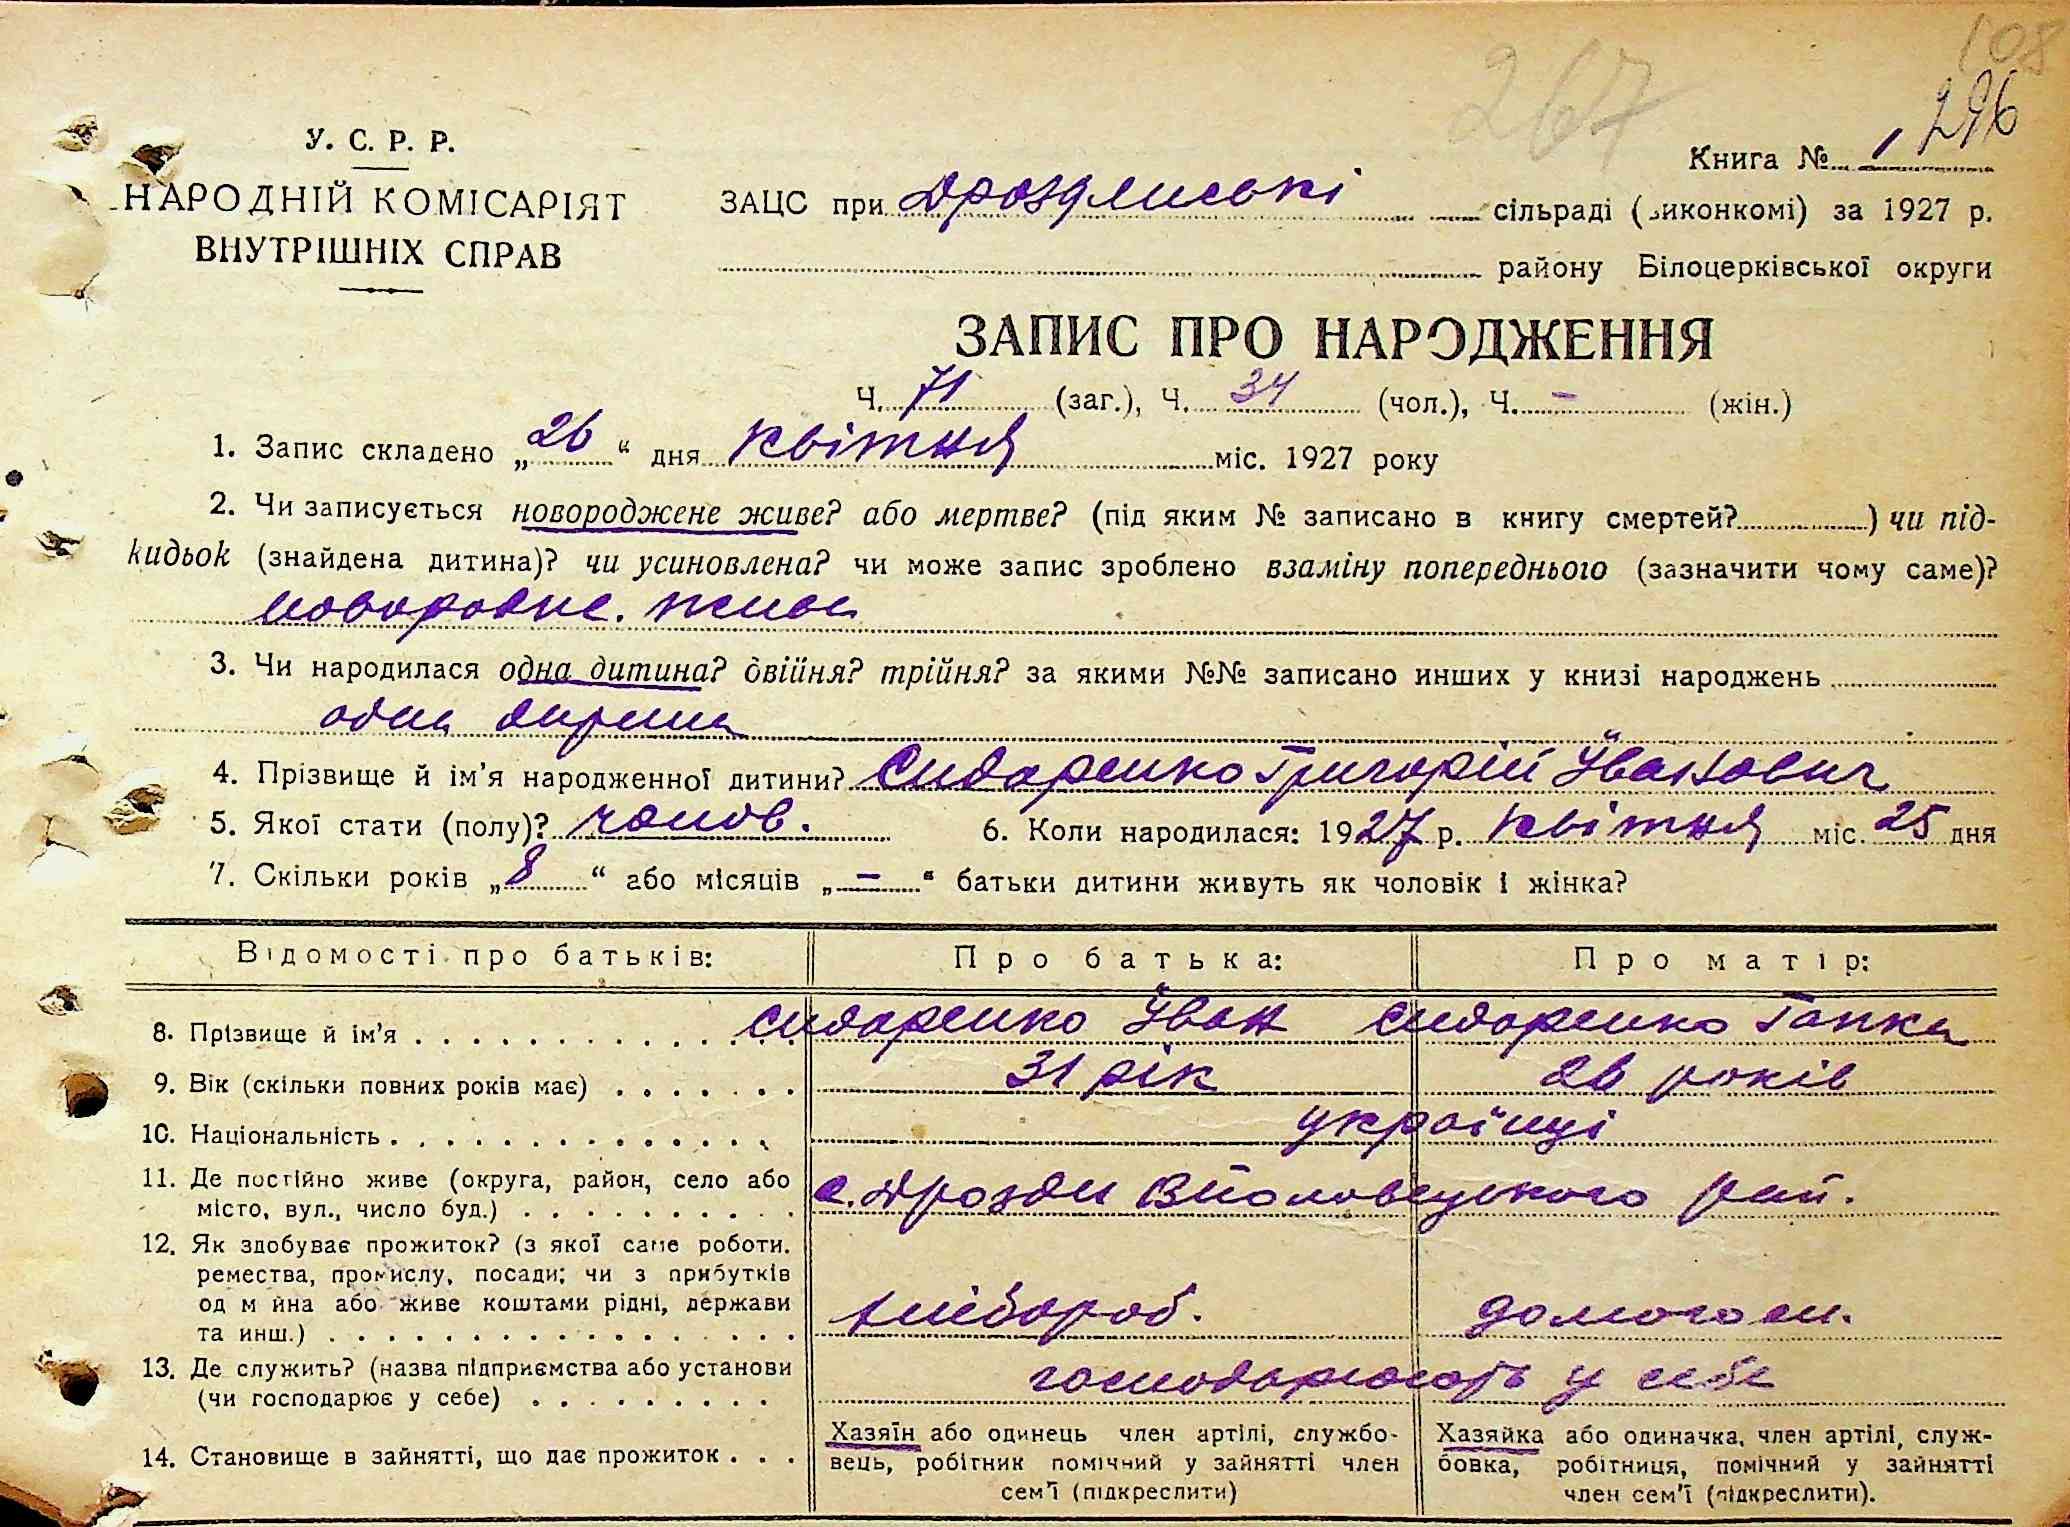 108
267
296
У. С. Р. Р.
Книга № 1
НАРОДНІЙ КОМІСАРІЯТ
ВНУТРІШНІХ СПРАВ
ЗАЦС при Дроздянські сільраді (виконкомі) за 1927 р.
району Білоцерківської округи
ЗАПИС ПРО НАРОДЖЕННЯ
Ч. 71 (заг.), Ч. 34 (чол.), Ч. – (жін.)
1. Запис складено „26“ дня квітня міс. 1927 року
2. Чи записується новороджене живе? або мертве? (під яким № записано в книгу смертей? ) чи під-
кидьок (знайдена дитина)? чи усиновлена? чи може запис зроблено взаміну попереднього (зазначити чому саме)?
новородне. живе
3. Чи народилася одна дитина? двійня? трійня? за якими №№ записано инших у книзі народжень
одна дитина
4. Прізвище й ім'я народженної дитини? Сидоренко Григорій Іванович
5. Якої стати (полу)? чолов. 6. Коли народилася: 1927 р. квітня міс. 25 дня
7. Скільки років „8“ або місяців „–“ батьки дитини живуть як чоловік і жінка?
Відомості про батьків: Про батька: Про матір:
8. Прізвище й ім'я Сидоренко Іван Сидоренко Гапка
9. Вік (скільки повних років має) 31 рік 26 років
10. Національність українці
11. Де постійно живе (округа, район, село або
місто, вул., число буд.) с. Дрозди рай.
12. Як здобуває прожиток? (з якої саме роботи,
ремества, промислу, посади; чи з прибутків
од м йна або живе коштами рідні, держави
та инш.) хлібороб. домогосп.
13. Де служить? (назва підприємства або установи
(чи господарює у себе) господарюють у себе
14. Становище в зайнятті, що дає прожиток
Хазяїн або одинець член артілі, службо-
вець, робітник помічний у зайнятті член
сем'ї (підкреслити)
Хазяйка або одиначка, член артілі, служ-
бовка, робітниця, помічний у зайнятті
член сем'ї (підкреслити).